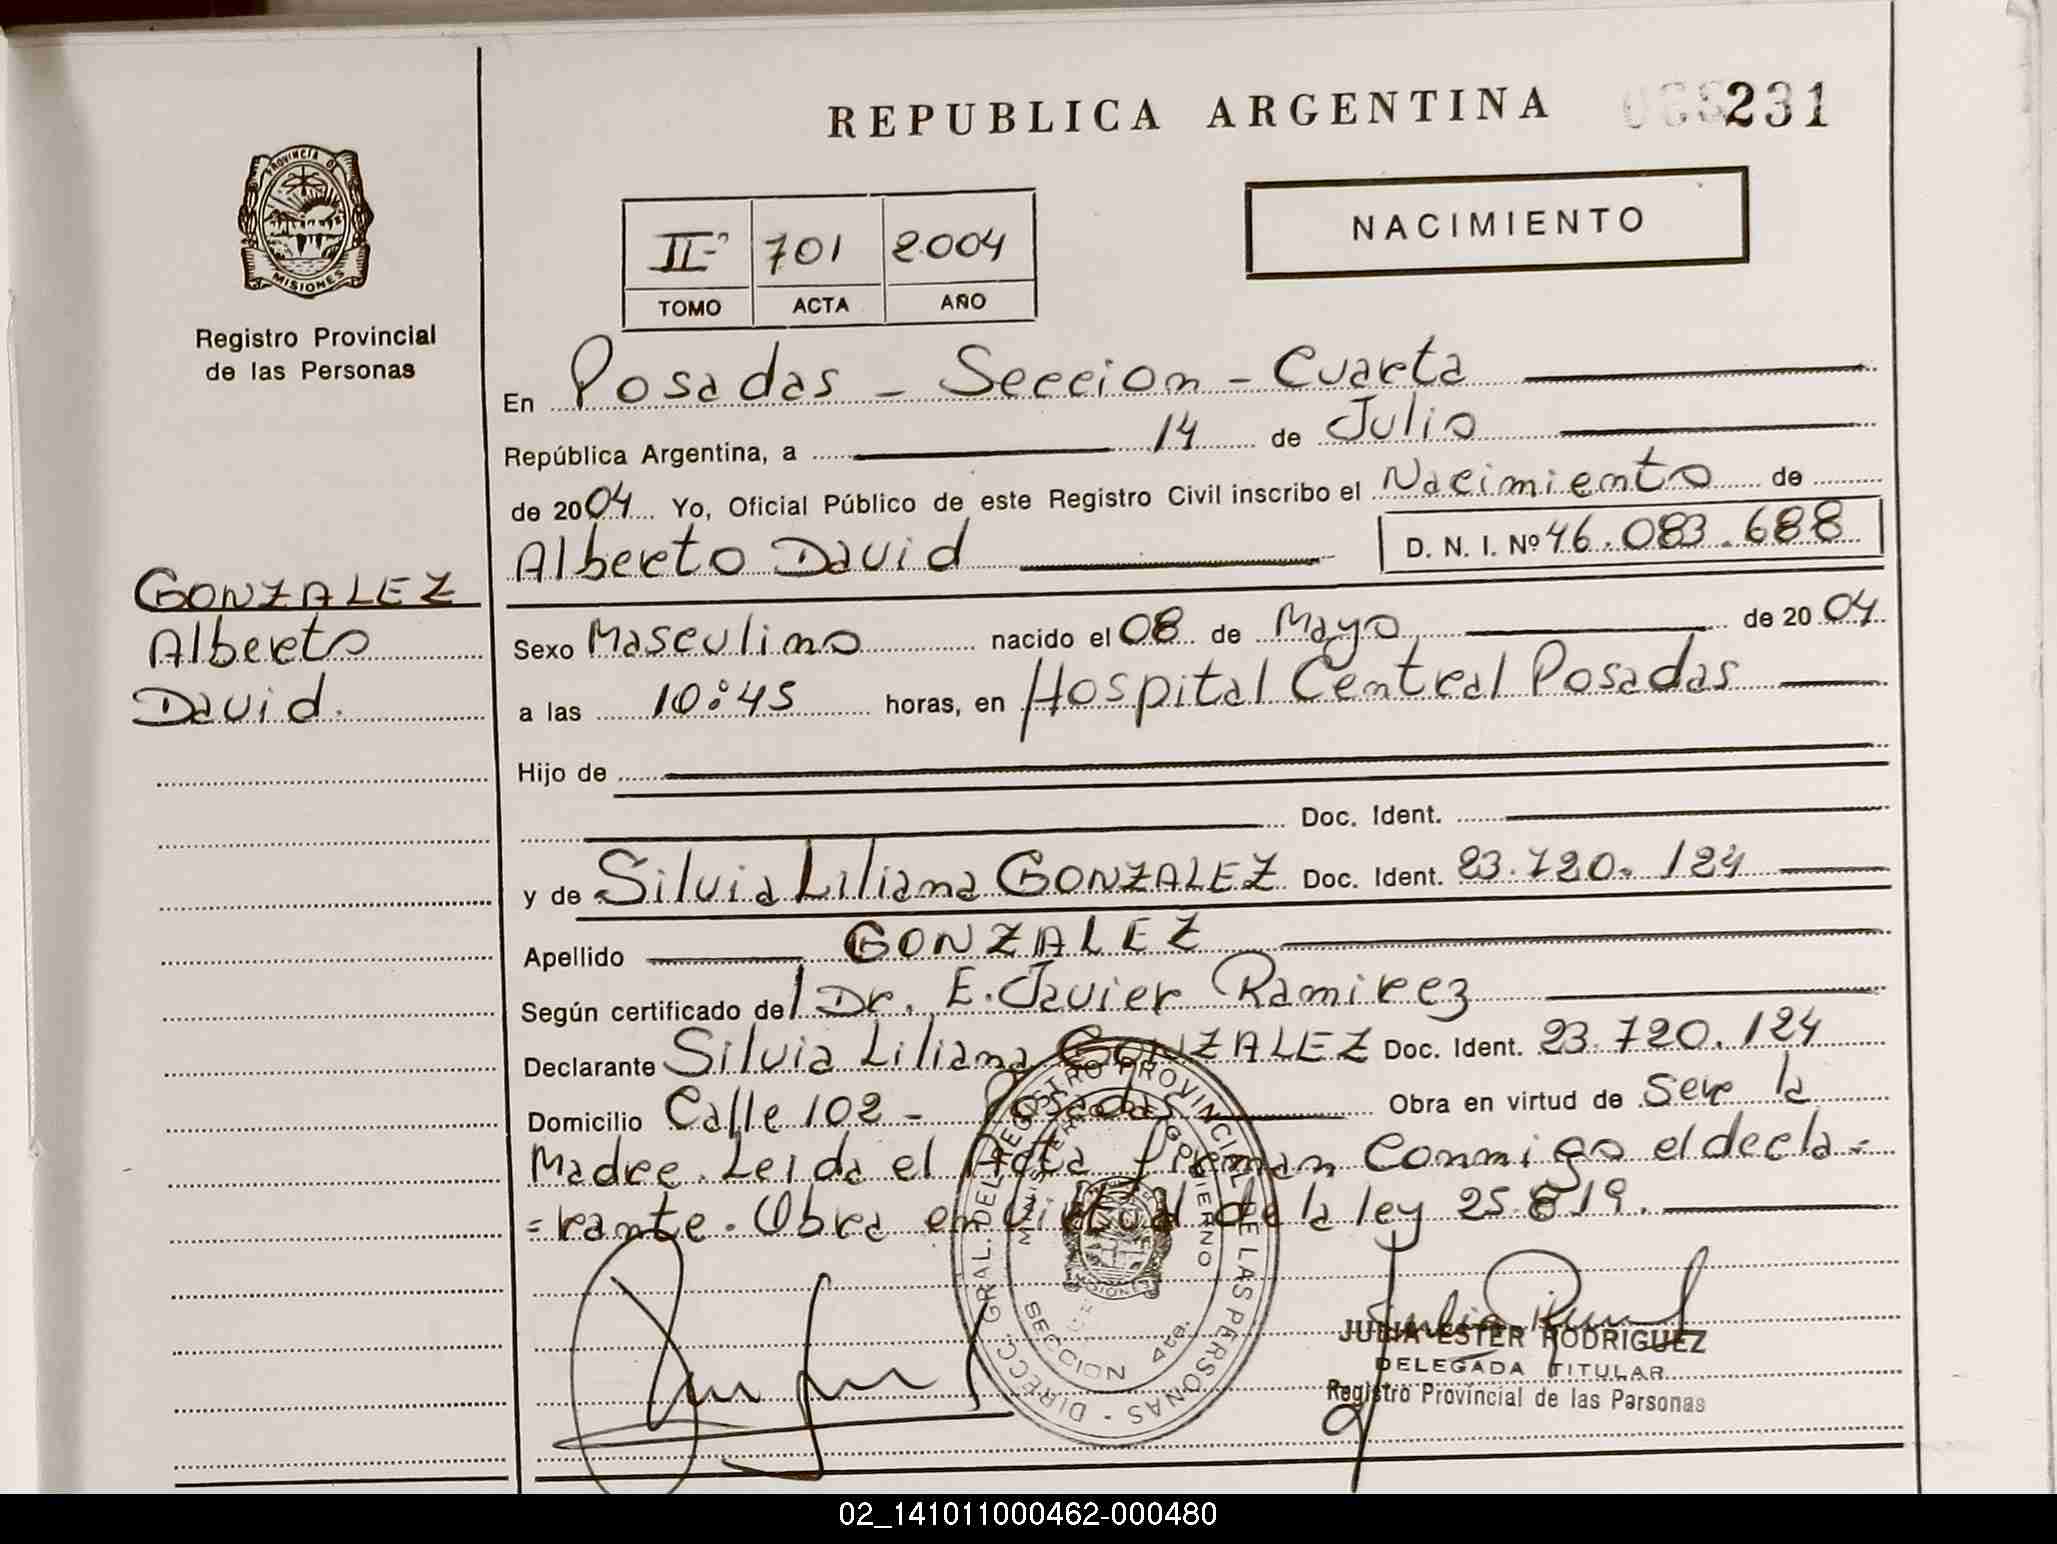 REPUBLICA ARGENTINA 068231
PROVINCIA DE
MISIONES
Registro Provincial
de las Personas
NACIMIENTO
IIº 701 2.004
TOMO ACTA AÑO
En Posadas - Seccion - Cuarta
República Argentina, a 14 de Julio
de 2004 Yo, Oficial Público de este Registro Civil inscribo el Nacimiento de
Alberto David D. N. I. Nº 46.083.688
GONZALEZ
Alberto
David.
Sexo Masculino nacido el 08 de Mayo de 2004
a las 10:45 horas, en Hospital Central Posadas
Hijo de
Doc. Ident.
y de Silvia Liliana GONZALEZ Doc. Ident. 23.720.124
Apellido GONZALEZ
Según certificado de Dr. E. Javier Ramirez
Declarante Silvia Liliana GONZALEZ Doc. Ident. 23.720.124
Domicilio Calle 102 - Posadas Obra en virtud de Ser la
Madre. Leida el Acta firman Conmigo el decla=
=rante. Obra en virtud de la ley 25.819.
DIRECC. GRAL. DEL REGISTRO PROVINCIAL DE LAS PERSONAS -
MINISTERIO DE GOBIERNO
MISIONES
SECCION 4ta.
JULIA ESTER RODRIGUEZ
DELEGADA TITULAR
Registro Provincial de las Personas
02_141011000462-000480